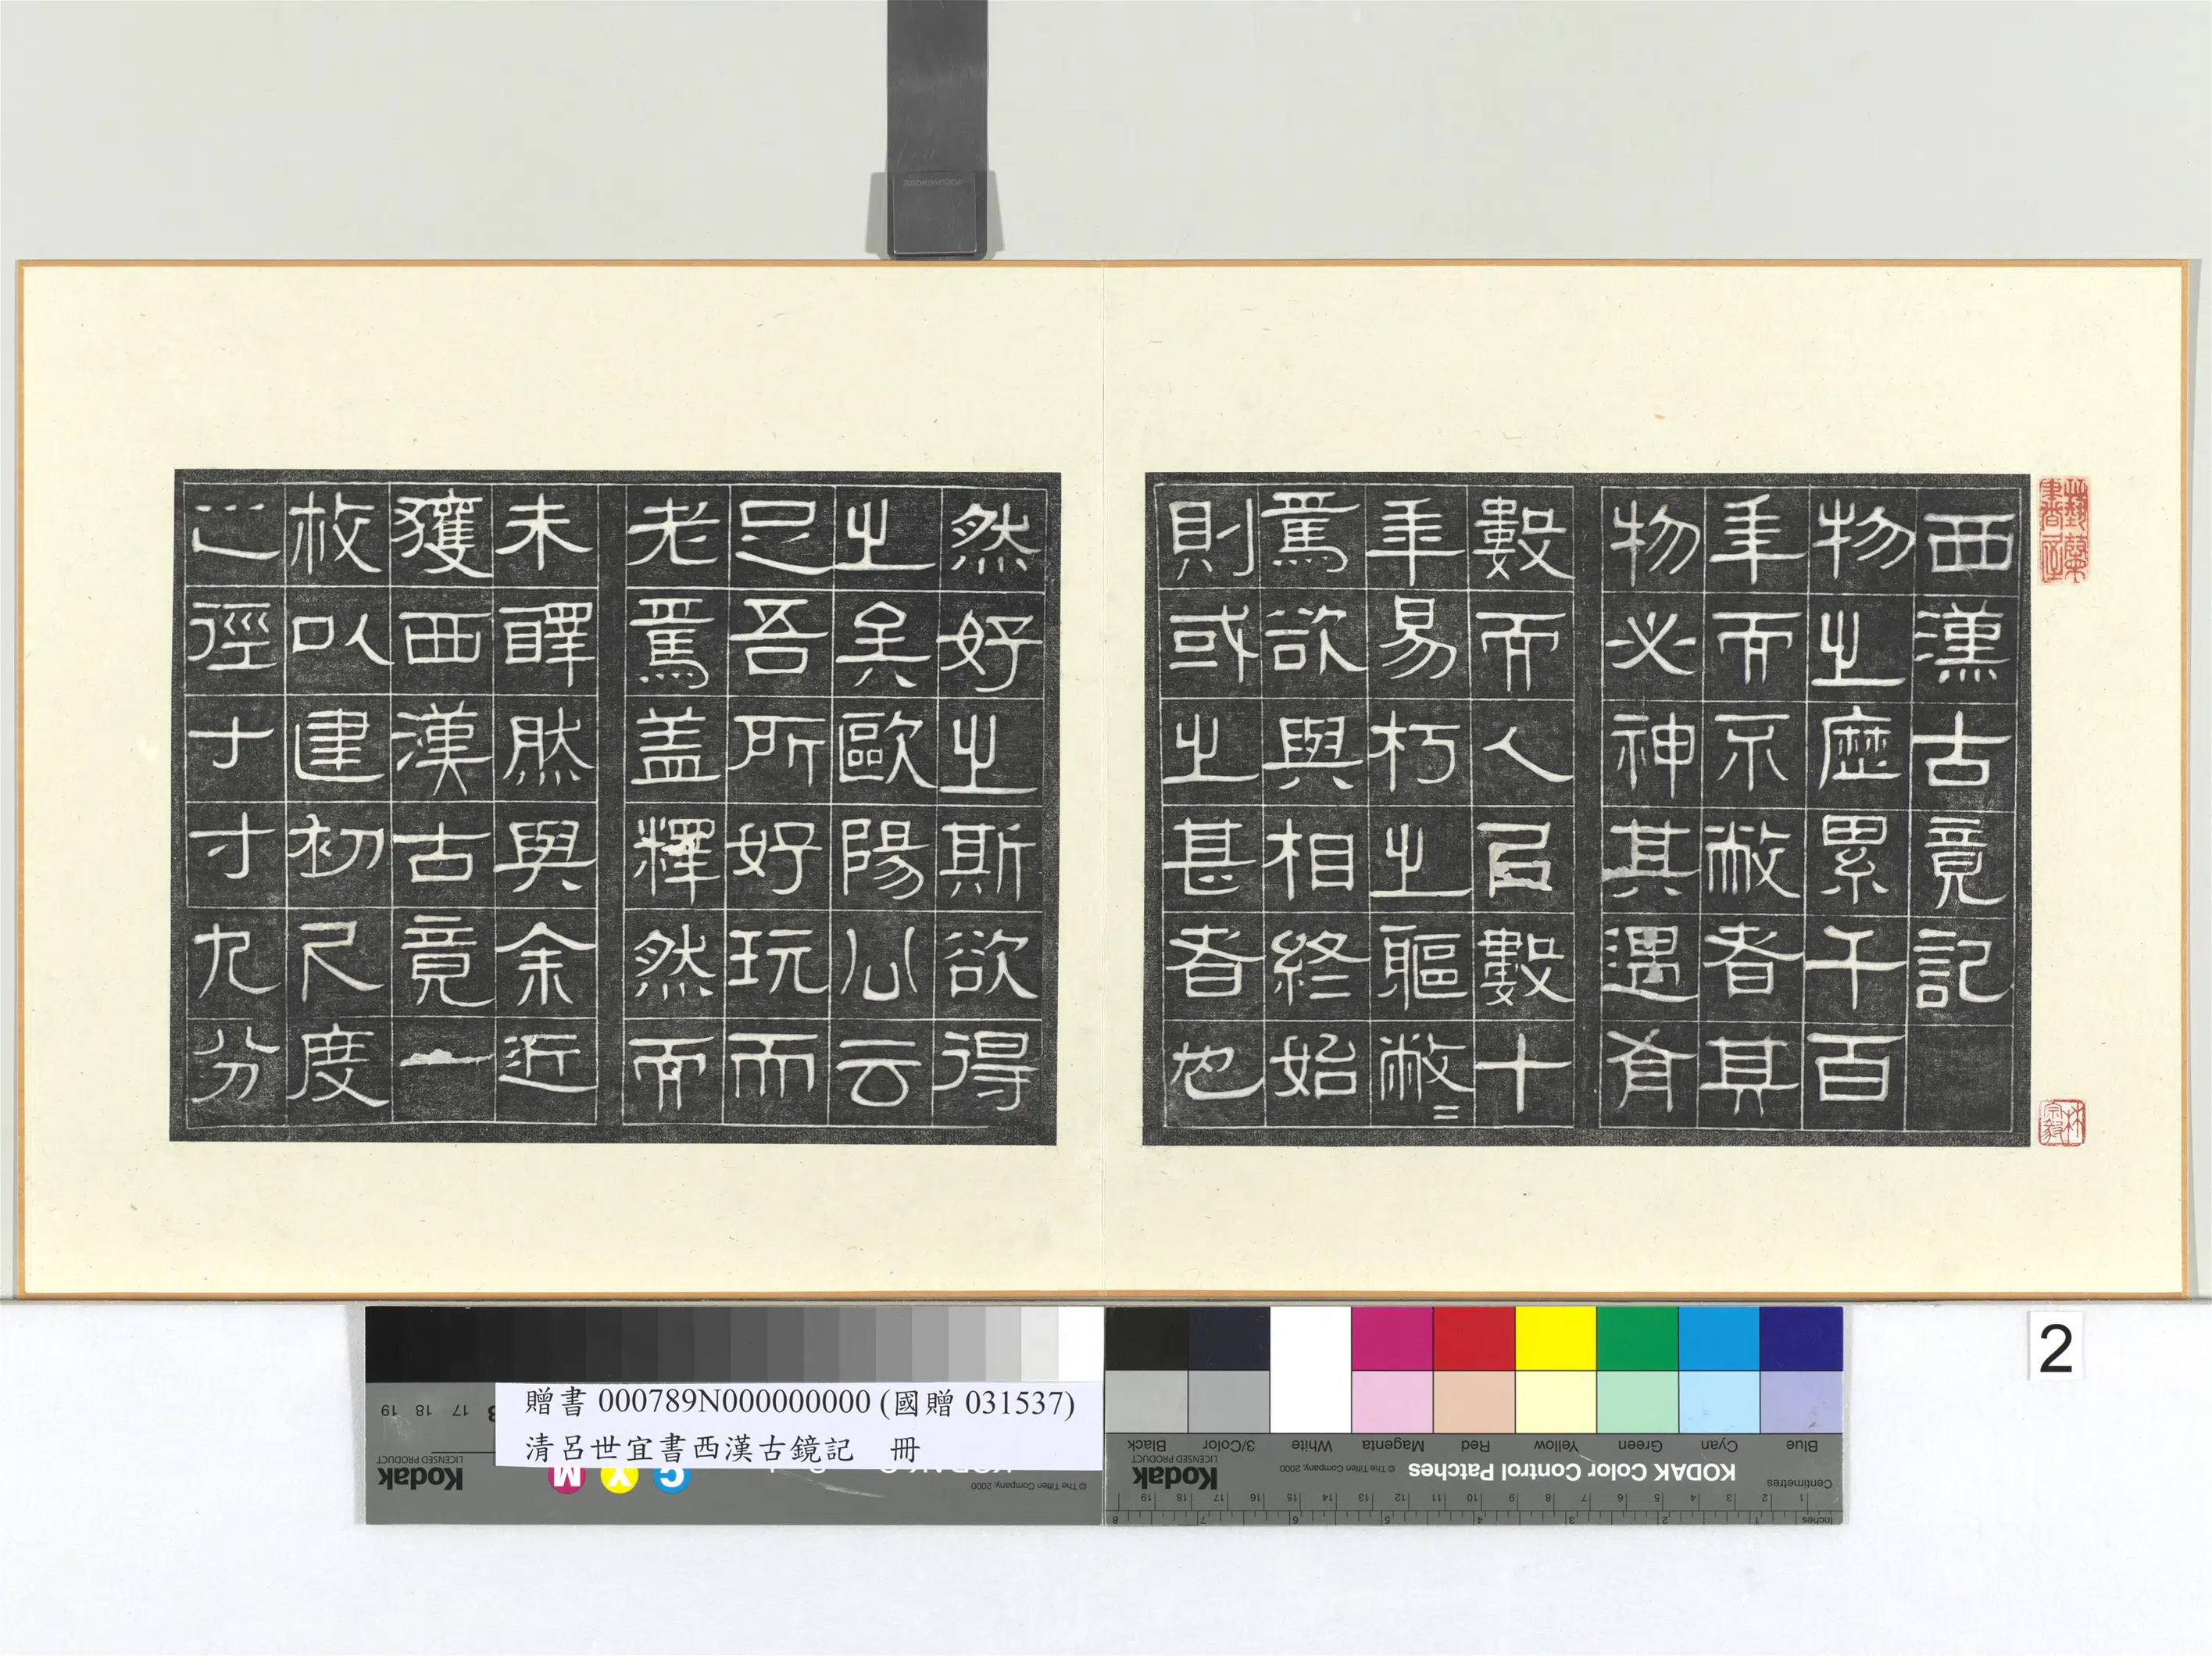 西漢古竟記
物之歷累千百
年而不敝者其
物必神其遇有
數而人㠯數十
年易朽之軀敝=
焉欲與相終始
則或之甚者也
然好之斯欲得
之矣歐陽公云
足吾所好玩而
老焉盖釋然而
未然與余近
獲西漢古竟一
枚以建初尺度
之徑七寸九分
林宗毅
2
贈書 000789N000000000 (國贈 031537)
清呂世宜書西漢古鏡記 冊
Blue Cyan Green Yellow Red Magenta White 3/Color Black
KODAK Color Control Patches
© The Tiffen Company, 2000
Kodak
LICENSED PRODUCT
Centimetres
Inches
© The Tiffen Company, 2000
Kodak
LICENSED PRODUCT
C Y M
17 18 19